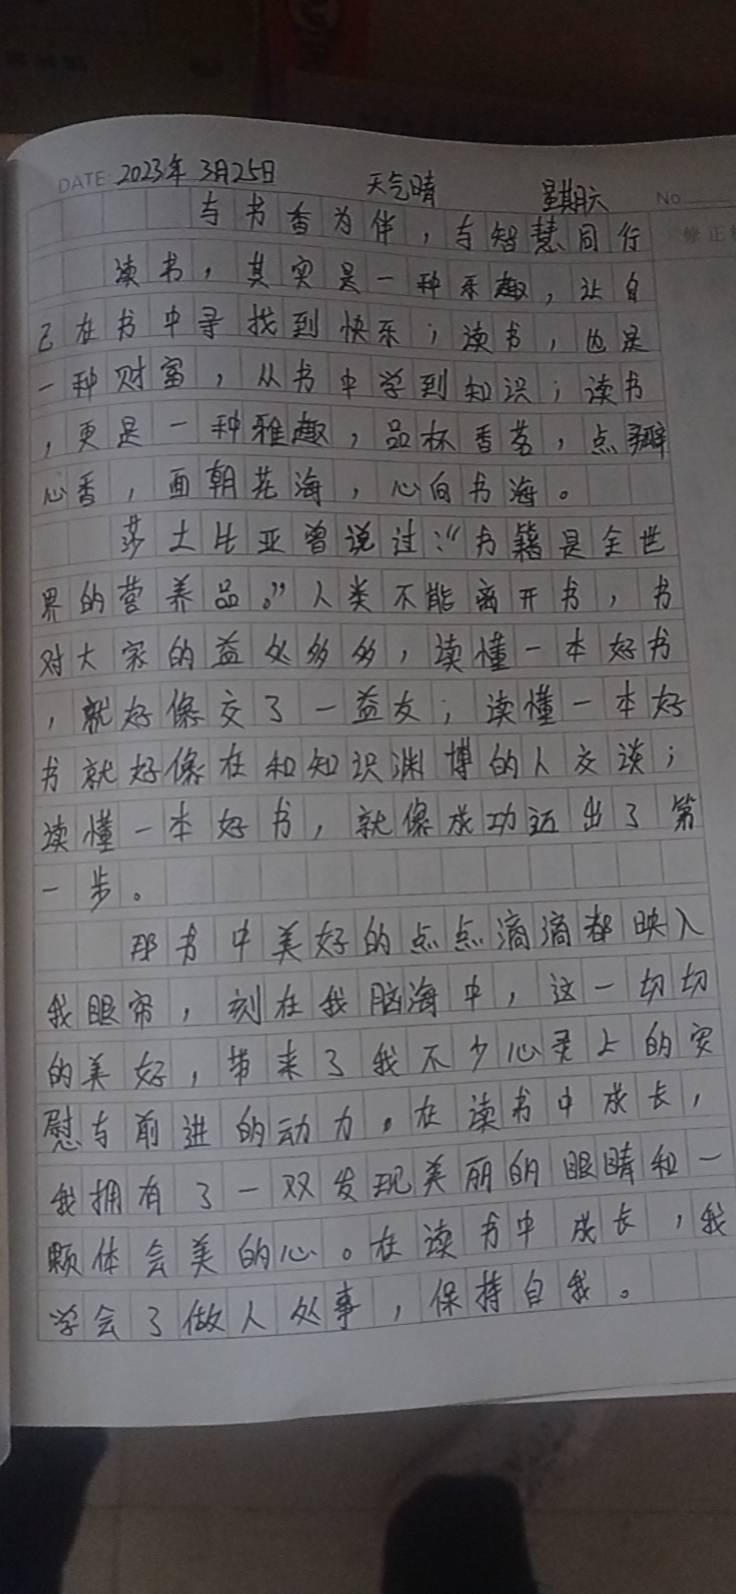 DATE 2023年3月25日 天气晴 星期六 No
与书香为伴，与智慧同行
读书，其实是一种乐趣，让自
己在书中寻找到快乐；读书，也是
一种财富，从书中学到知识；读书
，更是一种雅趣，品杯香茗，点瓣
心香，面朝花海，心向书海。
莎士比亚曾说过：“书籍是全世
界的营养品。”人类不能离开书，书
对大家的益处多多，读懂一本好书
，就好像交了一益友；读懂一本好
书就好像在和知识渊博的人交谈；
读懂一本好书，就像成功迈出了第
一步。
那书中美好的点点滴滴都映入
我眼帘，刻在我脑海中，这一切切
的美好，带来了我不少心灵上的安
慰与前进的动力。在读书中成长，
我拥有了一双发现美丽的眼睛和一
颗体会美的心。在读书中成长，我
学会了做人处事，保持自我。